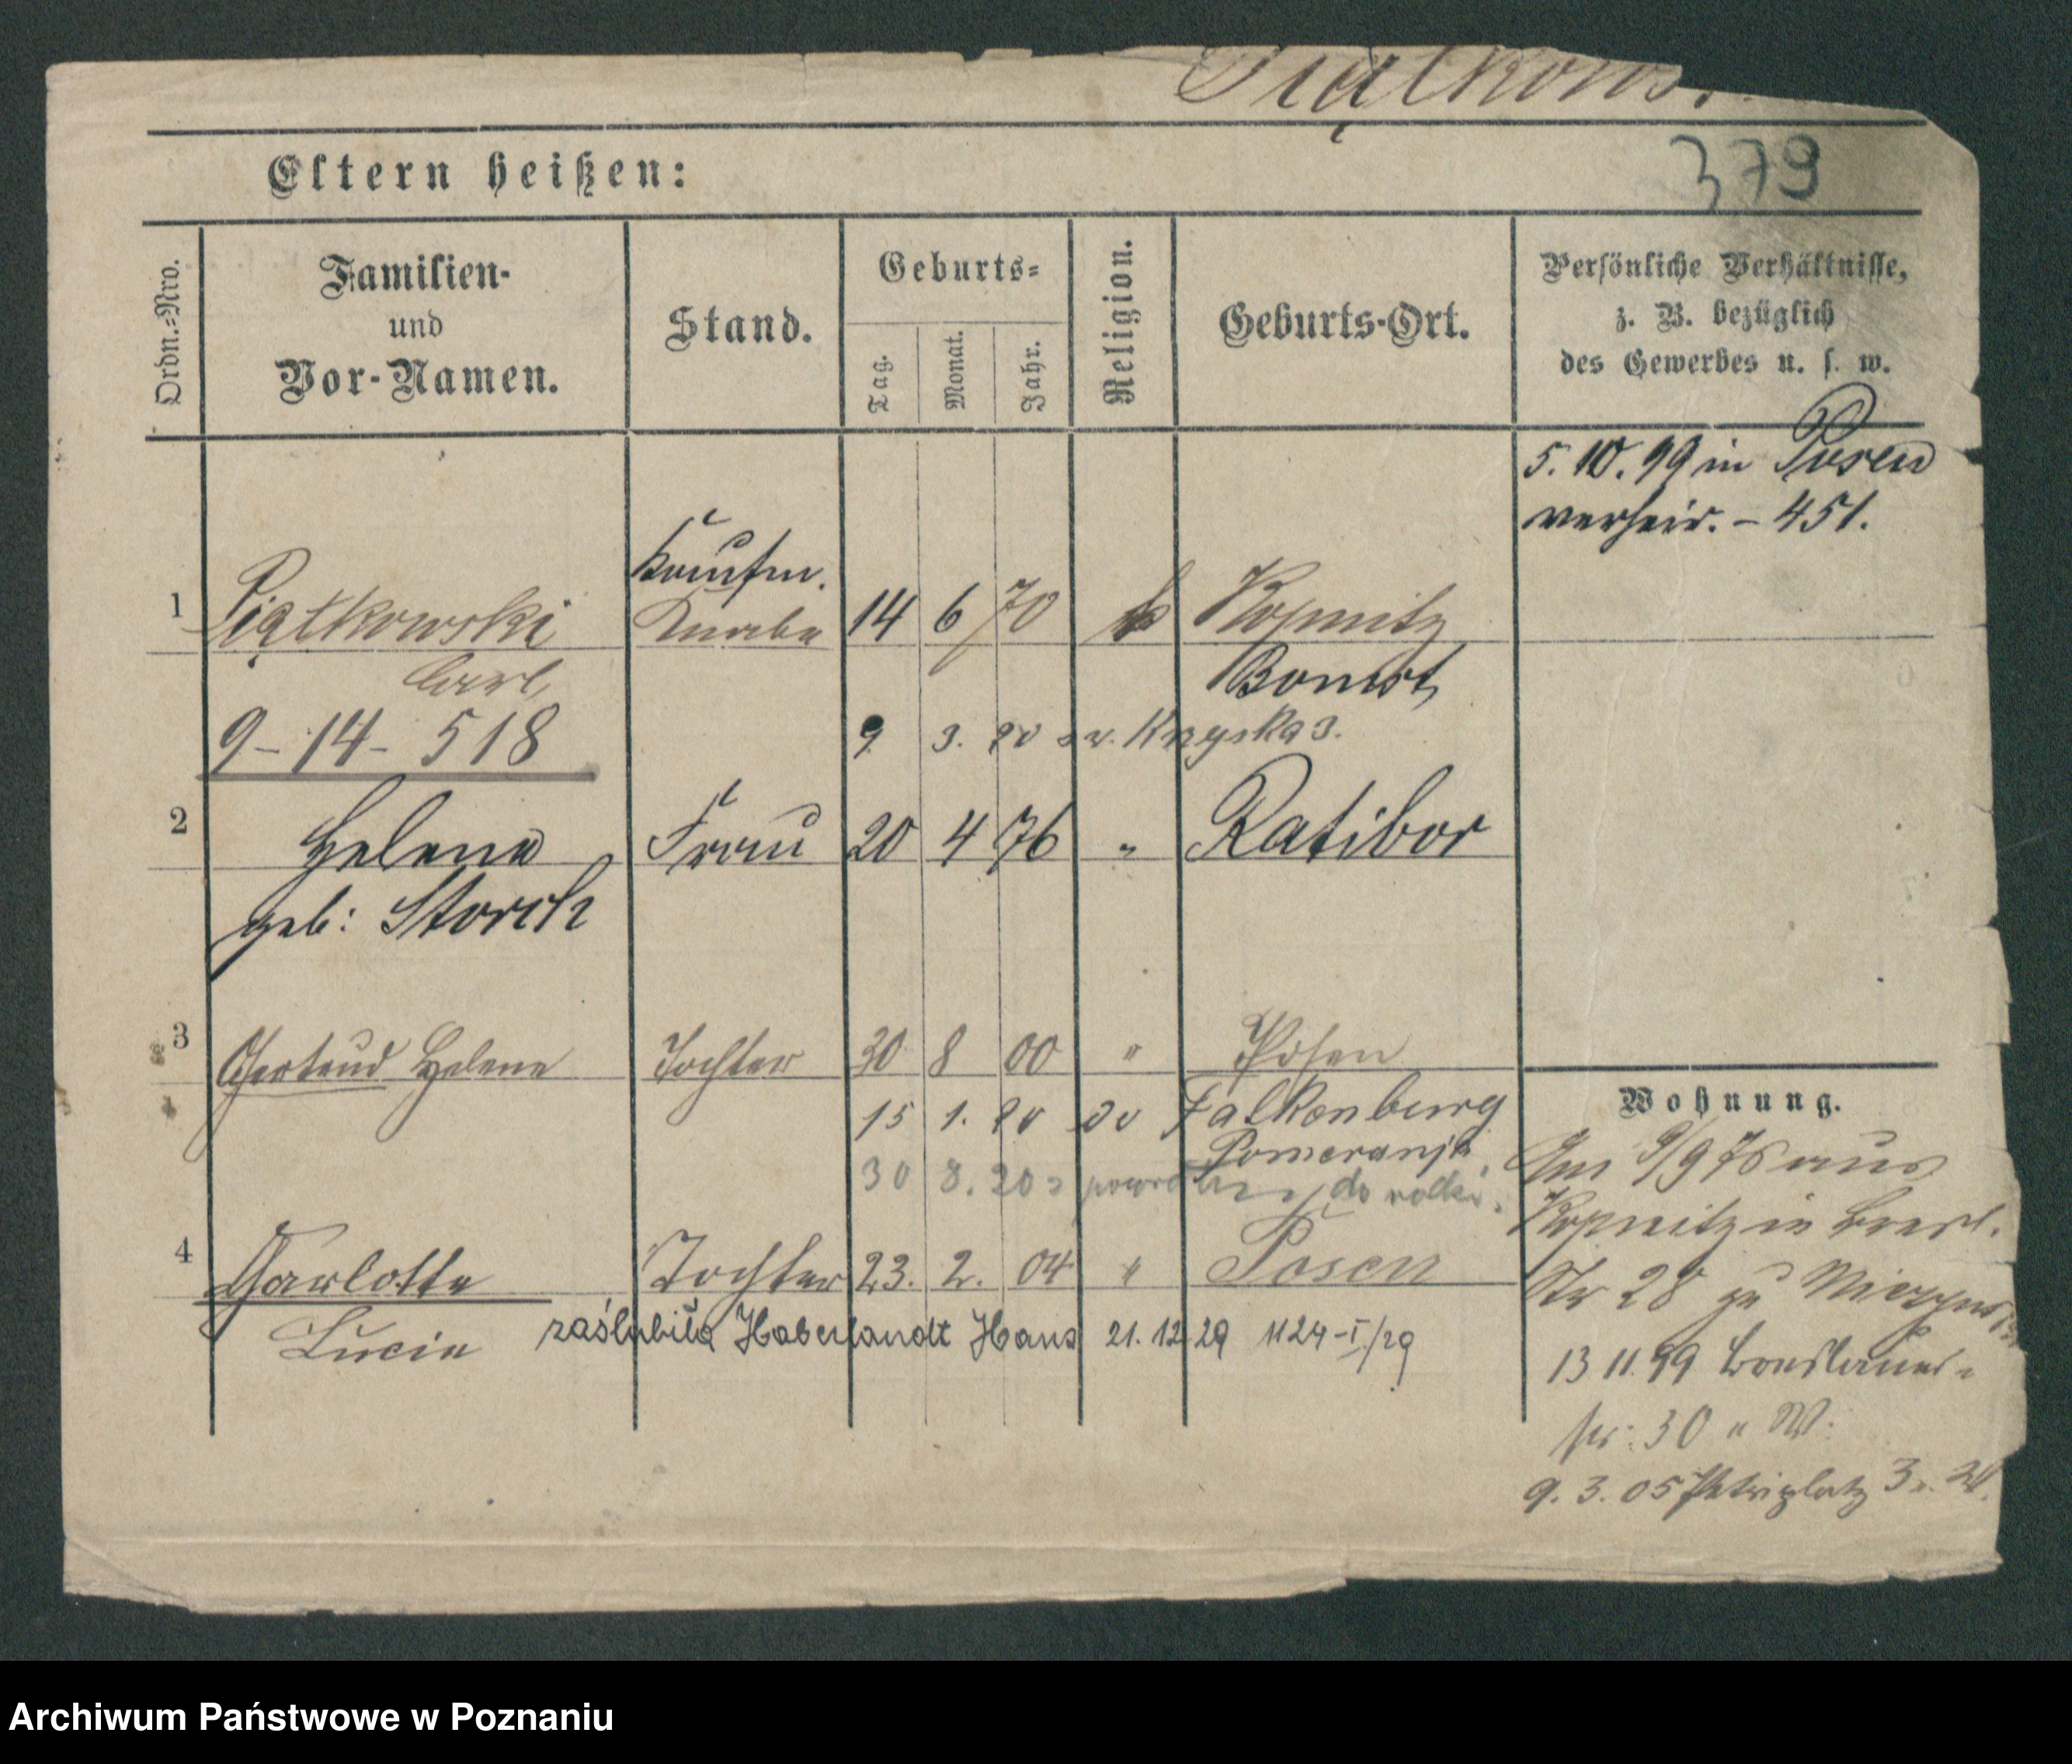 Piątkows
379
Eltern heißen:
Ordn.=Nro.
Familien-
und
Vor-Namen.
Stand.
Geburts=
Tag.
Monat.
Jahr.
Religion.
Geburts-Ort.
Persönliche Verhältnisse,
z. B. bezüglich
des Gewerbes u. s. w.
5. 10. 99 in Posen
verheir. – 451.
Kaufm.
1 Piątkowski Knabe 14 6 70 k Kopnitz
Carl, Bomst,
9 – 14 – 518 9 3. 20
2 Helene Frau 20 4 76 " Ratibor
geb: Storch
3 Gertrud Helene Tochter 30 8 00 " Posen
15 1. 20 do Falkenburg
Pomeranja
30 8. 20 do
4 Charlotte Tochter 23. 2. 04 " Posen
Lucie zaślubiła Haberlandt Hans 21. 12 29 1124–I/29
Wohnung.
Am 9/9 76 aus
Kopnitz in Bresl.
Str 28 zu
13 11. 99 Breslauer=
str: 30 " W.
9. 3. 05 Petriplatz 3
Archiwum Państwowe w Poznaniu